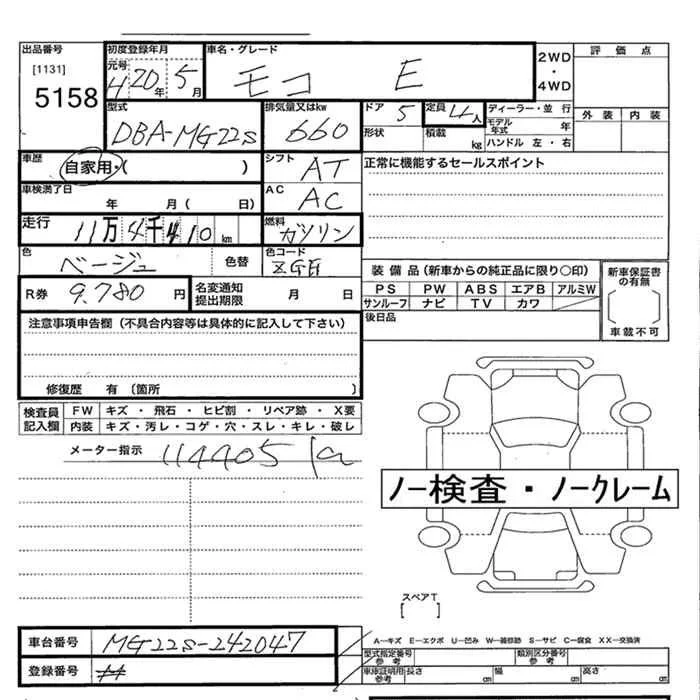 出品番号 初度登録年月 車名・グレード 2WD・4WD 評価点
[1131] 元号 H20年 5月 モコ E
5158 外装 内装
型式 排気量又はkw ドア 5 定員 4人 ディーラー・並行
DBA-MG22S 660 形状 積載 kg モデル年式 年
ハンドル 左・右
車歴 自家用・( ) シフト AT 正常に機能するセールスポイント
車検満了日 年 月( 日) AC AC
走行 11万4千410km 燃料 ガソリン
色 ベージュ 色替 色コード
装備品(新車からの純正品に限り〇印) 新車保証書の有無
R券 9.780円 名変通知提出期限 月 日 PS PW ABS エアB アルミW
サンルーフ ナビ TV カワ
後日品 車載不可
注意事項申告欄(不具合内容等は具体的に記入して下さい)
修復歴 有(箇所 )
検査員記入欄 FW キズ・飛石・ヒビ割・リペア跡・X要
内装 キズ・汚レ・コゲ・穴・スレ・キレ・破レ
メーター指示 114405
ノー検査・ノークレーム
スペアT
[ ]
車台番号 MG22S-242047 A―キズ E―エクボ U―凹み W―補修跡 S―サビ C―腐食 XX―交換済
型式指定番号 参考 類別区分番号 参考
登録番号 車庫証明用 参考 長さ cm 幅 cm 高さ cm